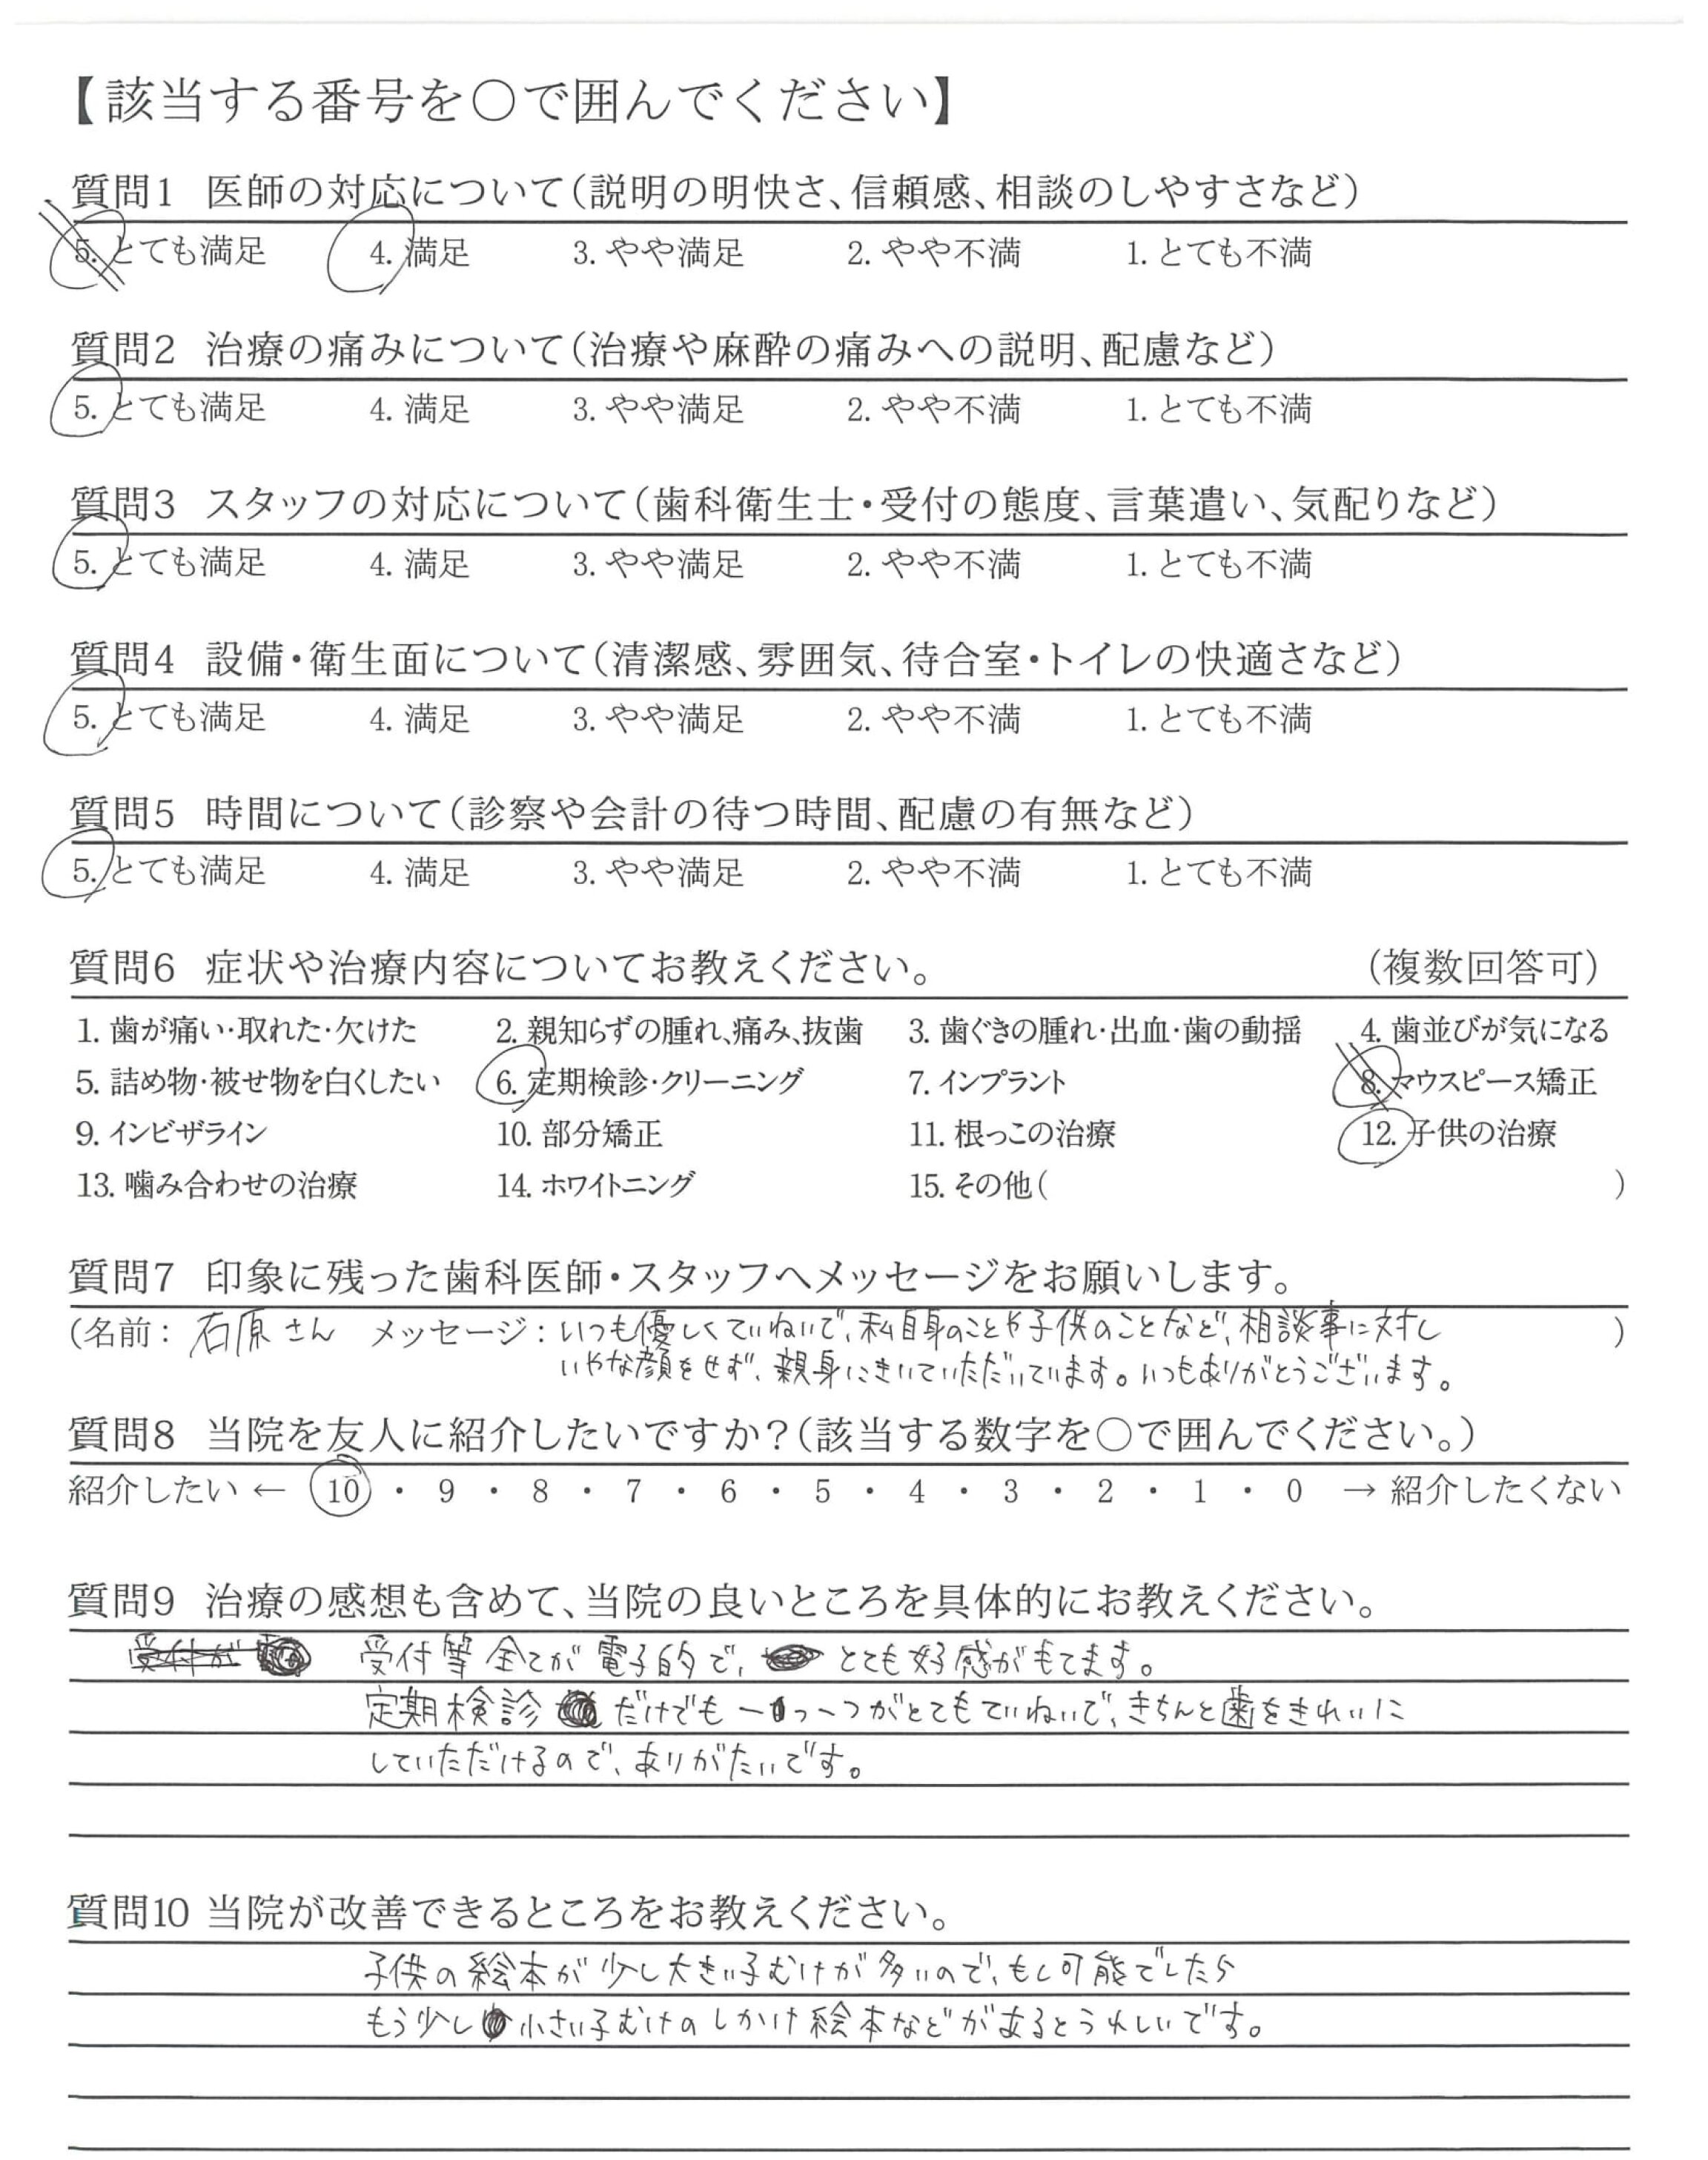 【該当する番号を〇で囲んでください】
質問1 医師の対応について(説明の明快さ、信頼感、相談のしやすさなど)
5. とても満足 4. 満足 3. やや満足 2. やや不満 1. とても不満
質問2 治療の痛みについて(治療や麻酔の痛みへの説明、配慮など)
5. とても満足 4. 満足 3. やや満足 2. やや不満 1. とても不満
質問3 スタッフの対応について(歯科衛生士・受付の態度、言葉遣い、気配りなど)
5. とても満足 4. 満足 3. やや満足 2. やや不満 1. とても不満
質問4 設備・衛生面について(清潔感、雰囲気、待合室・トイレの快適さなど)
5. とても満足 4. 満足 3. やや満足 2. やや不満 1. とても不満
質問5 時間について(診察や会計の待つ時間、配慮の有無など)
5. とても満足 4. 満足 3. やや満足 2. やや不満 1. とても不満
質問6 症状や治療内容についてお教えください。 (複数回答可)
1. 歯が痛い・取れた・欠けた 2. 親知らずの腫れ、痛み、抜歯 3. 歯ぐきの腫れ・出血・歯の動揺 4. 歯並びが気になる
5. 詰め物・被せ物を白くしたい 6. 定期検診・クリーニング 7. インプラント 8. マウスピース矯正
9. インビザライン 10. 部分矯正 11. 根っこの治療 12. 子供の治療
13. 噛み合わせの治療 14. ホワイトニング 15. その他( )
質問7 印象に残った歯科医師・スタッフへメッセージをお願いします。
(名前: 石原さん メッセージ: いつも優しくていねいで、私自身のことや子供のことなど、相談事に対し )
いやな顔をせず、親身にきいていただいています。いつもありがとうございます。
質問8 当院を友人に紹介したいですか?(該当する数字を〇で囲んでください。)
紹介したい ← 10 ・ 9 ・ 8 ・ 7 ・ 6 ・ 5 ・ 4 ・ 3 ・ 2 ・ 1 ・ 0 → 紹介したくない
質問9 治療の感想も含めて、当院の良いところを具体的にお教えください。
受付が 受付等全てが電子的で、とても好感がもてます。
定期検診だけでも一つ一つがとてもていねいで、きちんと歯をきれいに
していただけるので、ありがたいです。
質問10 当院が改善できるところをお教えください。
子供の絵本が少し大きい子むけが多いので、もし可能でしたら
もう少し小さい子むけのしかけ絵本などがあるとうれしいです。